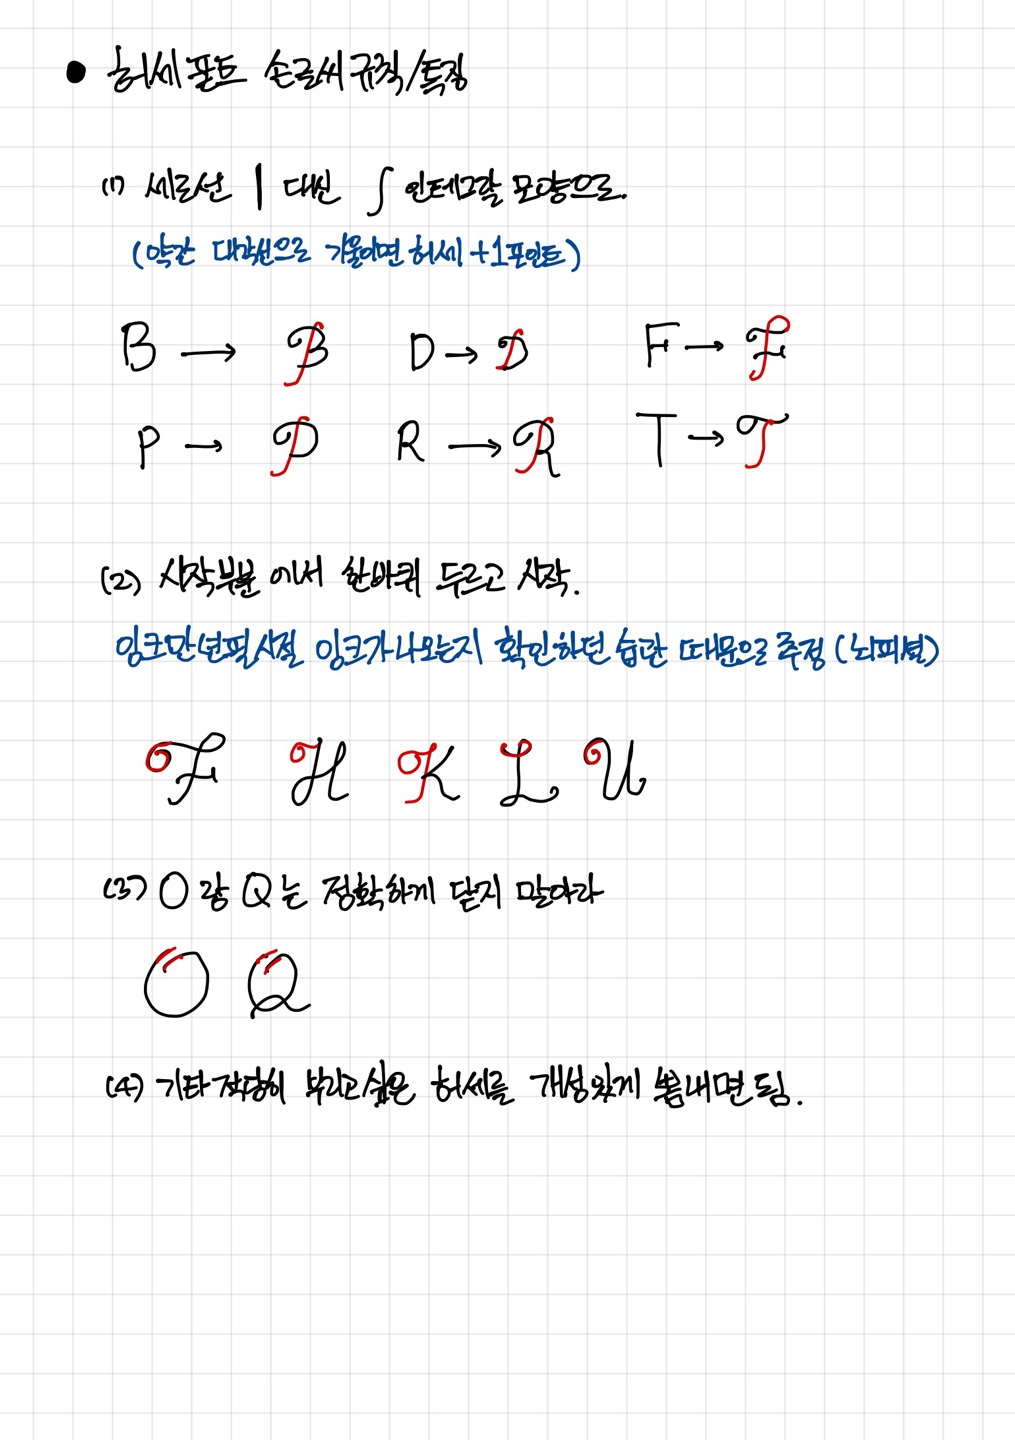 ● 허세 폰트 손글씨 규칙/특징
(1) 세로선 | 대신 ∫ 인테그랄 모양으로.
(약간 대각선으로 기울이면 허세 +1포인트)
B → B D → D F → F
P → P R → R T → T
(2) 시작부분 에서 한바퀴 두르고 시작.
잉크만년필시절 잉크가나오는지 확인하던 습관 때문으로 추정 (뇌피셜)
F H K L U
(3) O 랑 Q 는 정확하게 닫지 말아라
O Q
(4) 기타 적당히 부리고싶은 허세를 개성있게 뽐내면 됨.